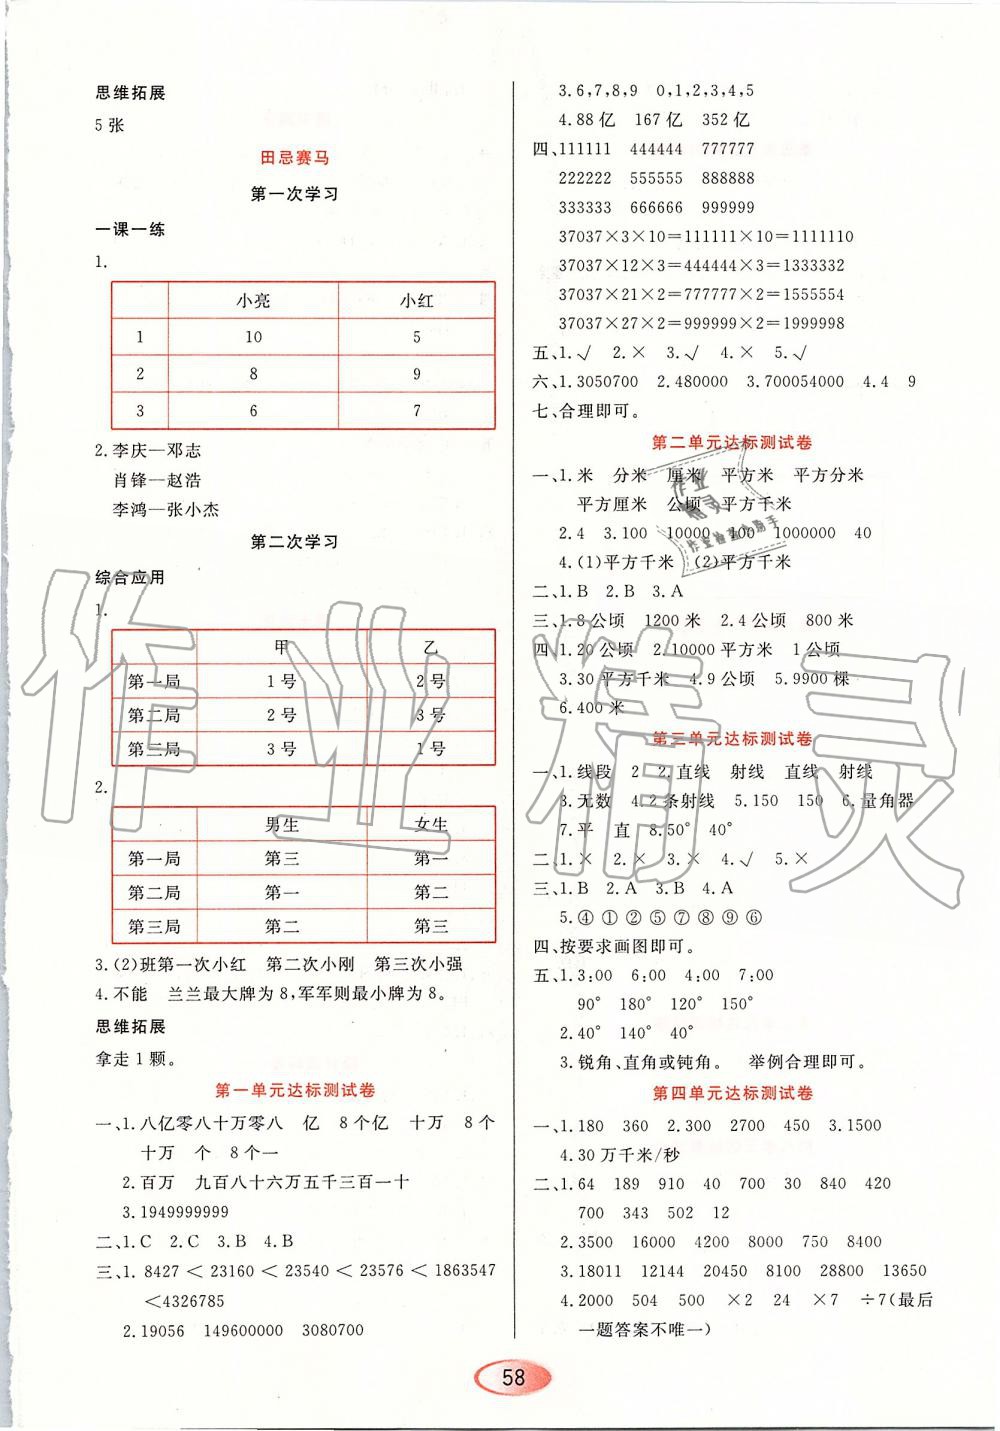 思维拓展
5 张
田忌赛马
第一次学习
一课一练
1.
小亮 小红
1 10 5
2 8 9
3 6 7
2.李庆—邓志
肖锋—赵浩
李鸿—张小杰
第二次学习
综合应用
1.
甲 乙
第一局 1号 2号
第二局 2号 3号
第三局 3号 1号
2.
男生 女生
第一局 第三 第一
第二局 第一 第二
第三局 第二 第三
3.(2)班第一次小红 第二次小刚 第三次小强
4.不能 兰兰最大牌为8,军军则最小牌为8。
思维拓展
拿走1颗。
第一单元达标测试卷
一、1.八亿零八十万零八 亿 8个亿 十万 8个
十万 个 8个一
2.百万 九百八十六万五千三百一十
3.1949999999
二、1.C 2.C 3.B 4.B
三、1. 8427＜23160＜23540＜23576＜1863547
＜4326785
2.19056 149600000 3080700
3.6,7,8,9 0,1,2,3,4,5
4.88亿 167亿 352亿
四、111111 444444 777777
222222 555555 888888
333333 666666 999999
37037×3×10=111111×10=1111110
37037×12×3=444444×3=1333332
37037×21×2=777777×2=1555554
37037×27×2=999999×2=1999998
五、1.√ 2.× 3.√ 4.× 5.√
六、1.3050700 2.480000 3.700054000 4.4 9
七、合理即可。
第二单元达标测试卷
一、1.米 分米 厘米 平方米 平方分米
平方厘米 公顷 平方千米
2.4 3.100 10000 100 1000000 40
4.(1)平方千米 (2)平方千米
二、1.B 2.B 3.A
三、1.8公顷 1200米 2.4公顷 800米
四、1.20公顷 2.10000平方米 1公顷
3.30平方千米 4.9公顷 5.9900棵
6.400米
第三单元达标测试卷
一、1.线段 2 2.直线 射线 直线 射线
3.无数 4.2条射线 5.150 150 6.量角器
7.平 直 8.50° 40°
二、1.× 2.× 3.× 4.√ 5.×
三、1.B 2.A 3.B 4.A
5.④①②⑤⑦⑧⑨⑥
四、按要求画图即可。
五、1.3:00 6:00 4:00 7:00
90° 180° 120° 150°
2.40° 140° 40°
3.锐角、直角或钝角。 举例合理即可。
第四单元达标测试卷
一、1.180 360 2.300 2700 450 3.1500
4.30万千米/秒
二、1.64 189 910 40 700 30 840 420
700 343 502 12
2.3500 16000 4200 8000 750 8400
3.18011 12144 20450 8100 28800 13650
4.2000 504 500 ×2 24 ×7 ÷7(最后
一题答案不唯一)
58
作业精灵